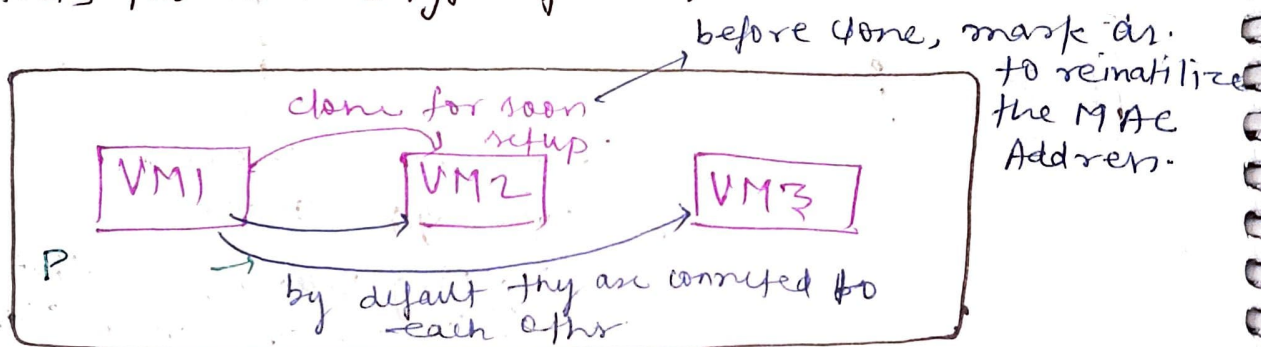 before clone, mark as.
to reinatilize
the MAC
Address.
clone for soon
setup.
VM1
VM2
VM3
P
by default thy are connected to
each othr